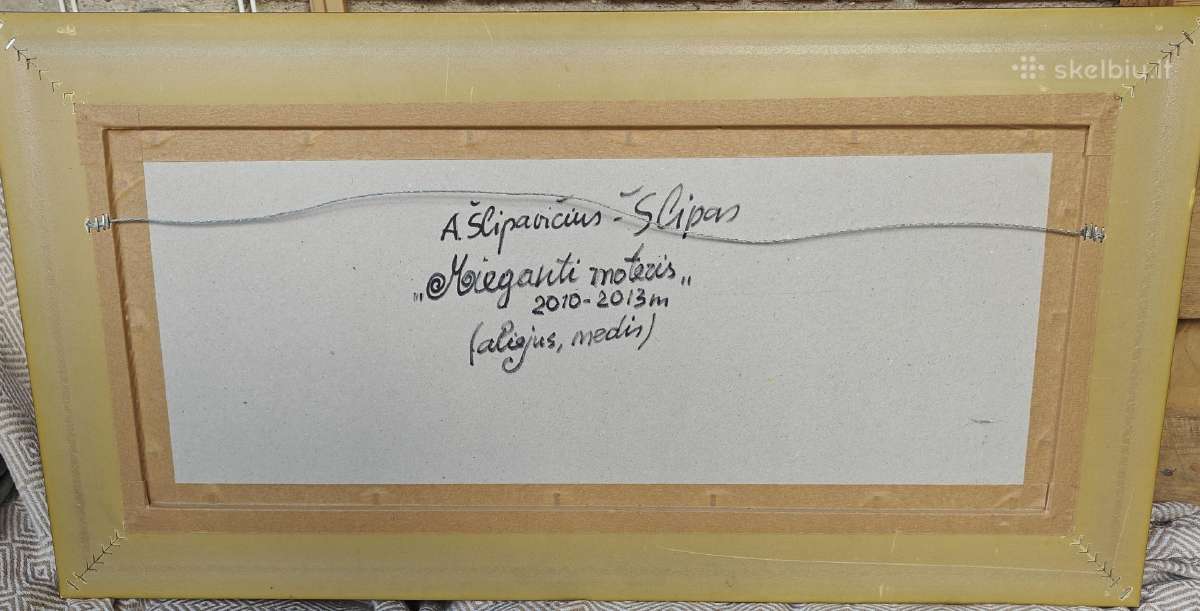 skelbiu.lt
A. Šlipavičius - Šlipas
„Mieganti moteris„
2010-2013m
(aliejus, medis)